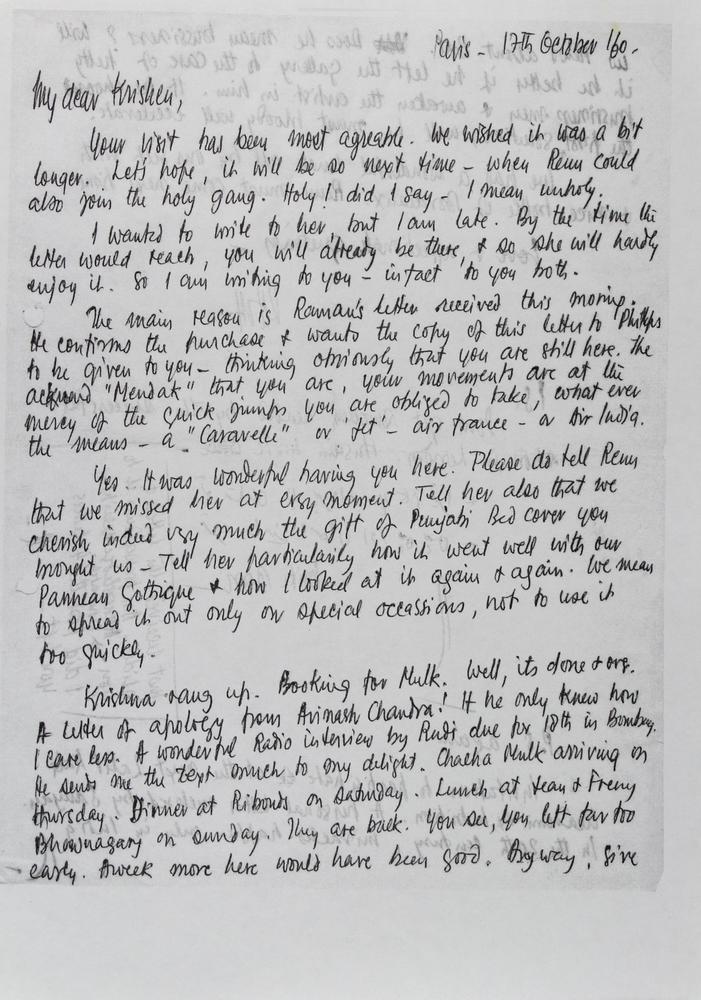 Paris - 17th October '60.
My dear Krishen,
Your visit has been most agreable. We wished it was a bit
longer. Let's hope, it will be so next time - when Renu could
also join the holy gang. Holy! did I say - I mean unholy.
I wanted to write to her, but I am late. By the time the
letter would reach, you will already be there, & so she will hardly
enjoy it. So I am writing to you - infact to you both.
The main reason is Raman's letter received this morning.
He confirms the purchase & wants the copy of this letter to Phillips
to be given to you - thinking obviously that you are still here. the
"Mendak" that you are, your movements are at the
mercy of the quick jumps you are obliged to take, what ever
the means - a "Caravelle" or 'Jet' - air France - or Air India.
Yes. It was wonderful having you here. Please do tell Renu
that we missed her at every moment. Tell her also that we
cherish indeed very much the gift of Punjabi Bed cover you
brought us - Tell her particularily how it went well with our
Panneau Gothique & how I looked at it again & again. We mean
to spread it out only on special occassions, not to use it
too quickly.
Krishna rang up. Booking for Mulk. Well, its done & org.
A letter of apology from Avinash Chandra! If he only knew how
I care less. A wonderful Radio interview by Rudi, due for 18th in Bombay.
He sends me the text much to my delight. Chacha Mulk arriving on
thursday. Dinner at Ribouds on Saturday. Lunch at Jean & Freny
Bhownagary on Sunday. They are back. You see, you left far too
early. A week more here would have been good. Anyway, give